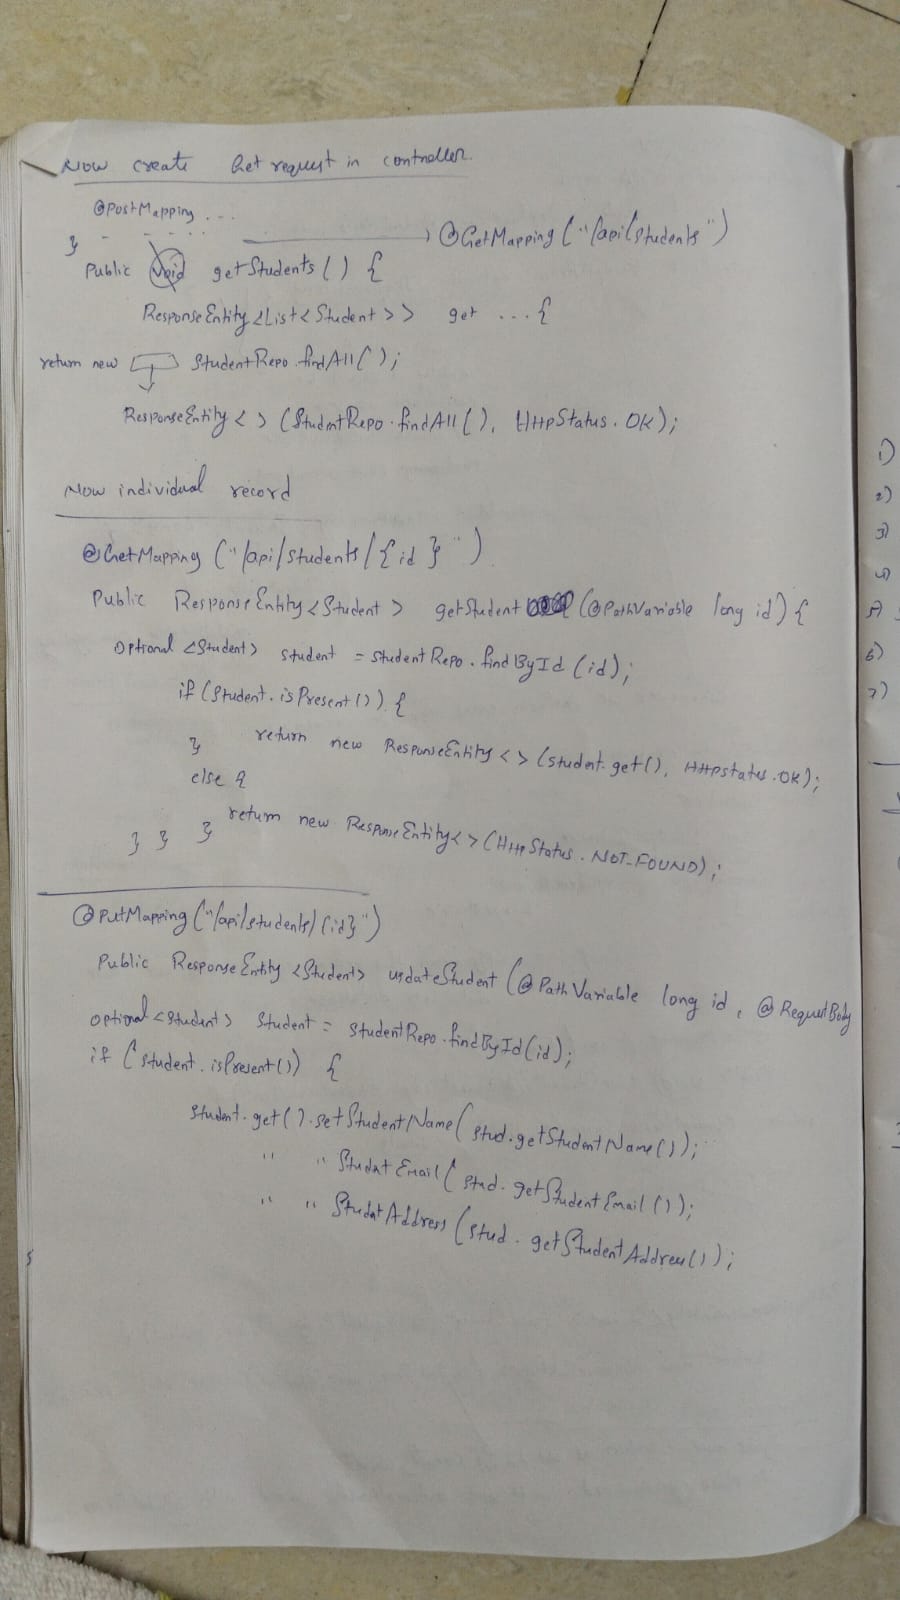 Now create Get request in controller.
@PostMapping ...
} - - - - - → @GetMapping ("/api/students")
Public void getStudents() {
ResponseEntity<List<Student>> get ... {
return new StudentRepo.findAll();
ResponseEntity<> (StudentRepo.findAll(), HttpStatus.OK);
Now individual record
@GetMapping ("/api/students/{id}")
Public ResponseEntity<Student> getStudent (@PathVariable long id) {
Optional <Student> student = StudentRepo.findById(id);
if (Student.isPresent()) {
return new ResponseEntity<> (student.get(), HttpStatus.OK);
}
else {
return new ResponseEntity<> (HttpStatus.NOT_FOUND);
} } }
@PutMapping ("/api/students/{id}")
Public ResponseEntity <Student> updateStudent (@PathVariable long id, @RequestBody
Optional <Student> Student = StudentRepo.findById(id);
if (student.isPresent()) {
Student.get().setStudentName(stud.getStudentName());
" " StudentEmail(stud.getStudentEmail());
" " StudentAddress(stud.getStudentAddress());
1)
2)
3)
4)
5)
6)
7)